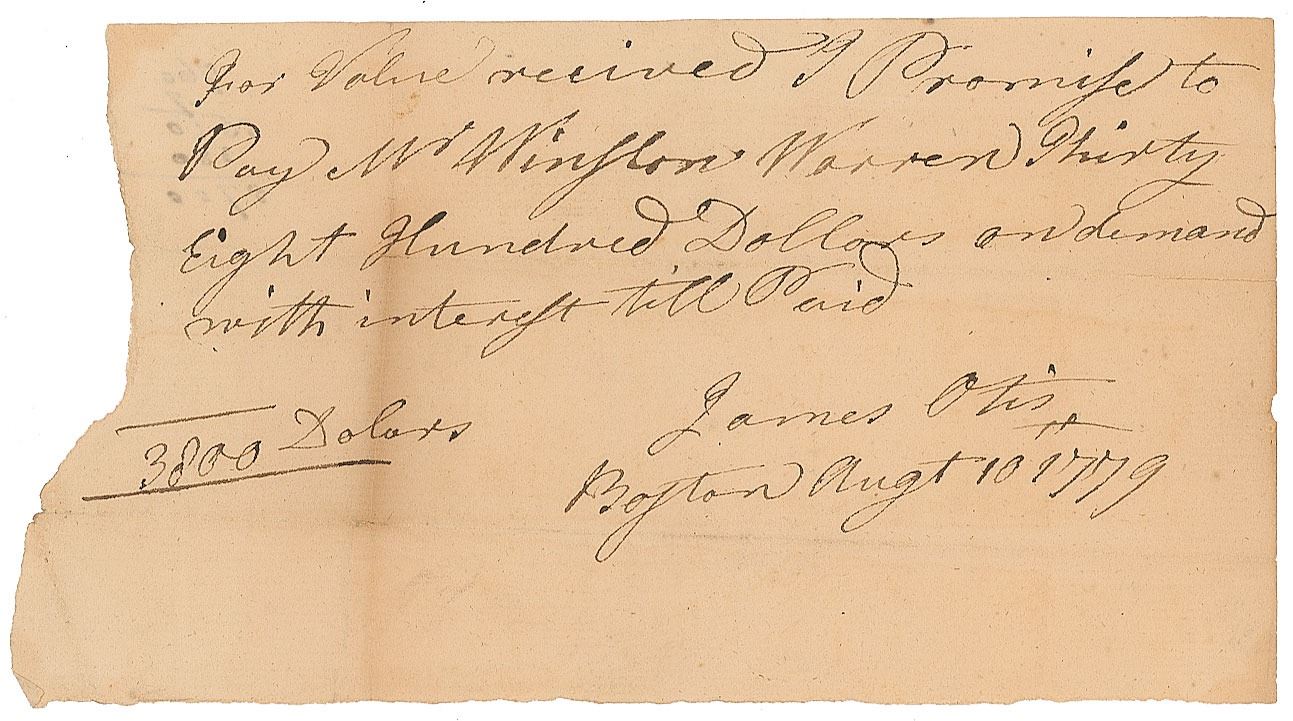 For Value reciued I Promise to
Pay Mr Winslow Warren Thirty
Eight Hundred Dollars on demand
with interest till Paid
James Otis
3800 Dolars
Boston Augt 10 1779